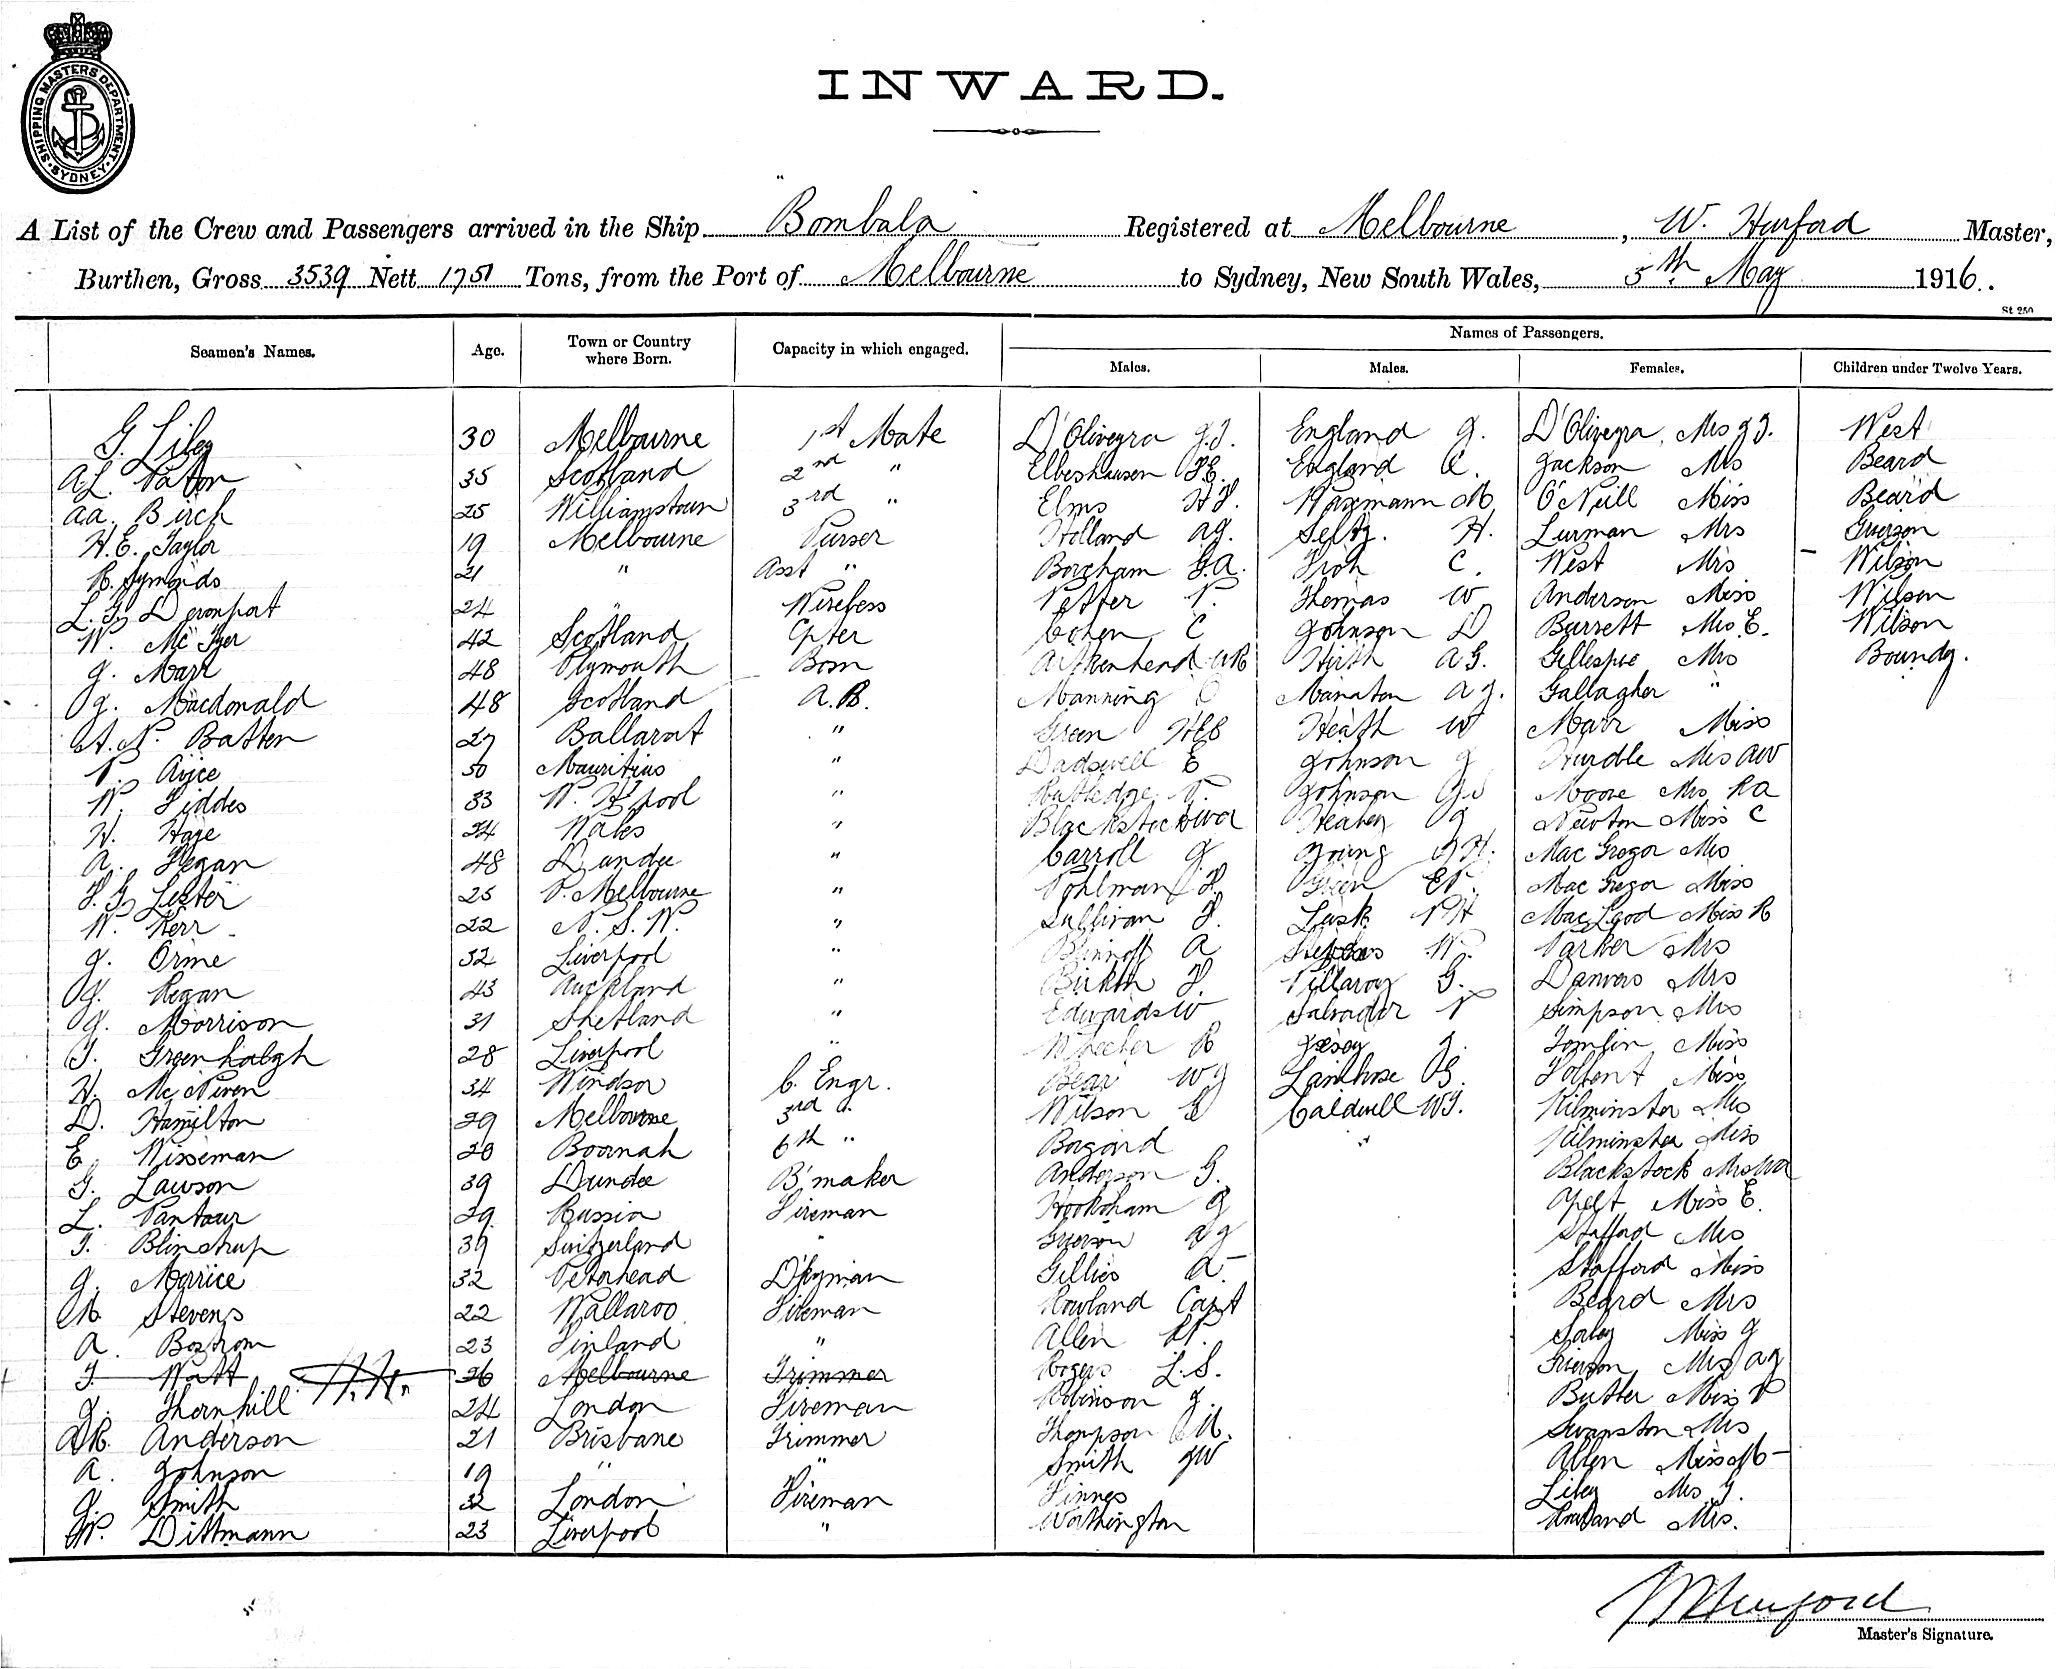 SHIPPING MASTERS DEPARTMENT
SYDNEY
INWARD.
A List of the Crew and Passengers arrived in the Ship Bombala Registered at Melbourne, W. Hurford Master,
Burthen, Gross 3539 Nett 1751 Tons, from the Port of Melbourne to Sydney, New South Wales, 5th May 1916.
St 250
Names of Passengers.
Seamen's Names. Age. Town or Country where Born. Capacity in which engaged. Males. Males. Females. Children under Twelve Years.
G. Liley 30 Melbourne 1st Mate D'Oliveyra G.J. England J. D'Oliveyra, Mrs G J. West
A L. Paton 35 Scotland 2nd " Elbeshausen England C. Jackson Mrs Beard
A A. Birch 25 Williamstown 3rd " Elms H F. Waxmann M O'Neill Miss Beard
H. E. Taylor 19 Melbourne Purser Holland A J. Seltz. H. Lurman Mrs Grierson
R. Symonds 21 " Asst " Boreham G. A. C. West Mrs Wilson
L. G. Devonport 24 " Wireless Petter P. Thomas W Anderson Miss Wilson
W. 42 Scotland Cpter Cohen C Johnson D Barrett Mrs E. Wilson
J. Marr 48 Plymouth Bosn Aitkenhead W R Hirth A G. Gillespie Mrs Boundy.
J. Macdonald 48 Scotland A. B. Manning C Manaton A J. Gallagher "
A. N. Batten 27 Ballarat " Green H E B Heath W Marr Miss
P. Avice 50 Mauritius " Dadswell E Johnson J Hurdle Mrs A W
W. Siddes 33 W. H'pool " Rutledge P. Johnson Moore Mrs R A
H. Hage 24 Wales " Blackstock W A Healey J Newton Miss C
A. Fegan 48 Dundee " Carroll J. Young J H. Mac Gregor Mrs
F. G. Lester 25 P. Melbourne " Pohlman F. Green E P. Mac Gregor Miss
W. Kerr 22 N. S. W. " Sullivan F. Lusk P H Mac Leod Miss R
J. Orme 32 Liverpool " A Stephens W. Parker Mrs
J. Regan 43 Auckland " F. Pillaroy G. Danvers Mrs
J. Morrison 31 Shetland " Edwards W Salvador P Simpson Mrs
T. Greenhalgh 28 Liverpool " Wheeler R J. Tomlin Miss
H. McNiven 34 Windsor C. Engr. Bear W J G. Miss
D. Hamilton 29 Melbourne 3rd " Wilson E Caldwell W J. Kilminster Mrs
E. Wisseman 20 Boonah 6th " Bogard Kilminster Miss
G. Lawson 39 Dundee B'maker Anderson G. Blackstock Mrs W A
L. Pantour 29 Russia Fireman Hookham J Apelt Miss E.
T. Blinstrup 39 Switzerland " Grierson A J Stafford Mrs
J. Morrice 32 Peterhead D'kyman Gillies A Stafford Miss
M. Stevens 22 Wallaroo Fireman Rowland Capt Beard Mrs
A. Bostrom 23 Finland " Allen R P. Miss J
T. Watt 26 Melbourne Trimmer Rogers L. S. Grierson, Mrs A J
J. Thornhill 24 London Fireman Robinson J. Butler Miss P
D R. Anderson 21 Brisbane Trimmer Thompson M. Swanston Mrs
A. Johnson 19 " " Smith J W Allen Miss M
J. Smith 32 London Fireman Finnes Liley Mrs G.
W. Dittmann 23 Liverpool " Worthington Rowland Mrs.
W Hurford
Master's Signature.